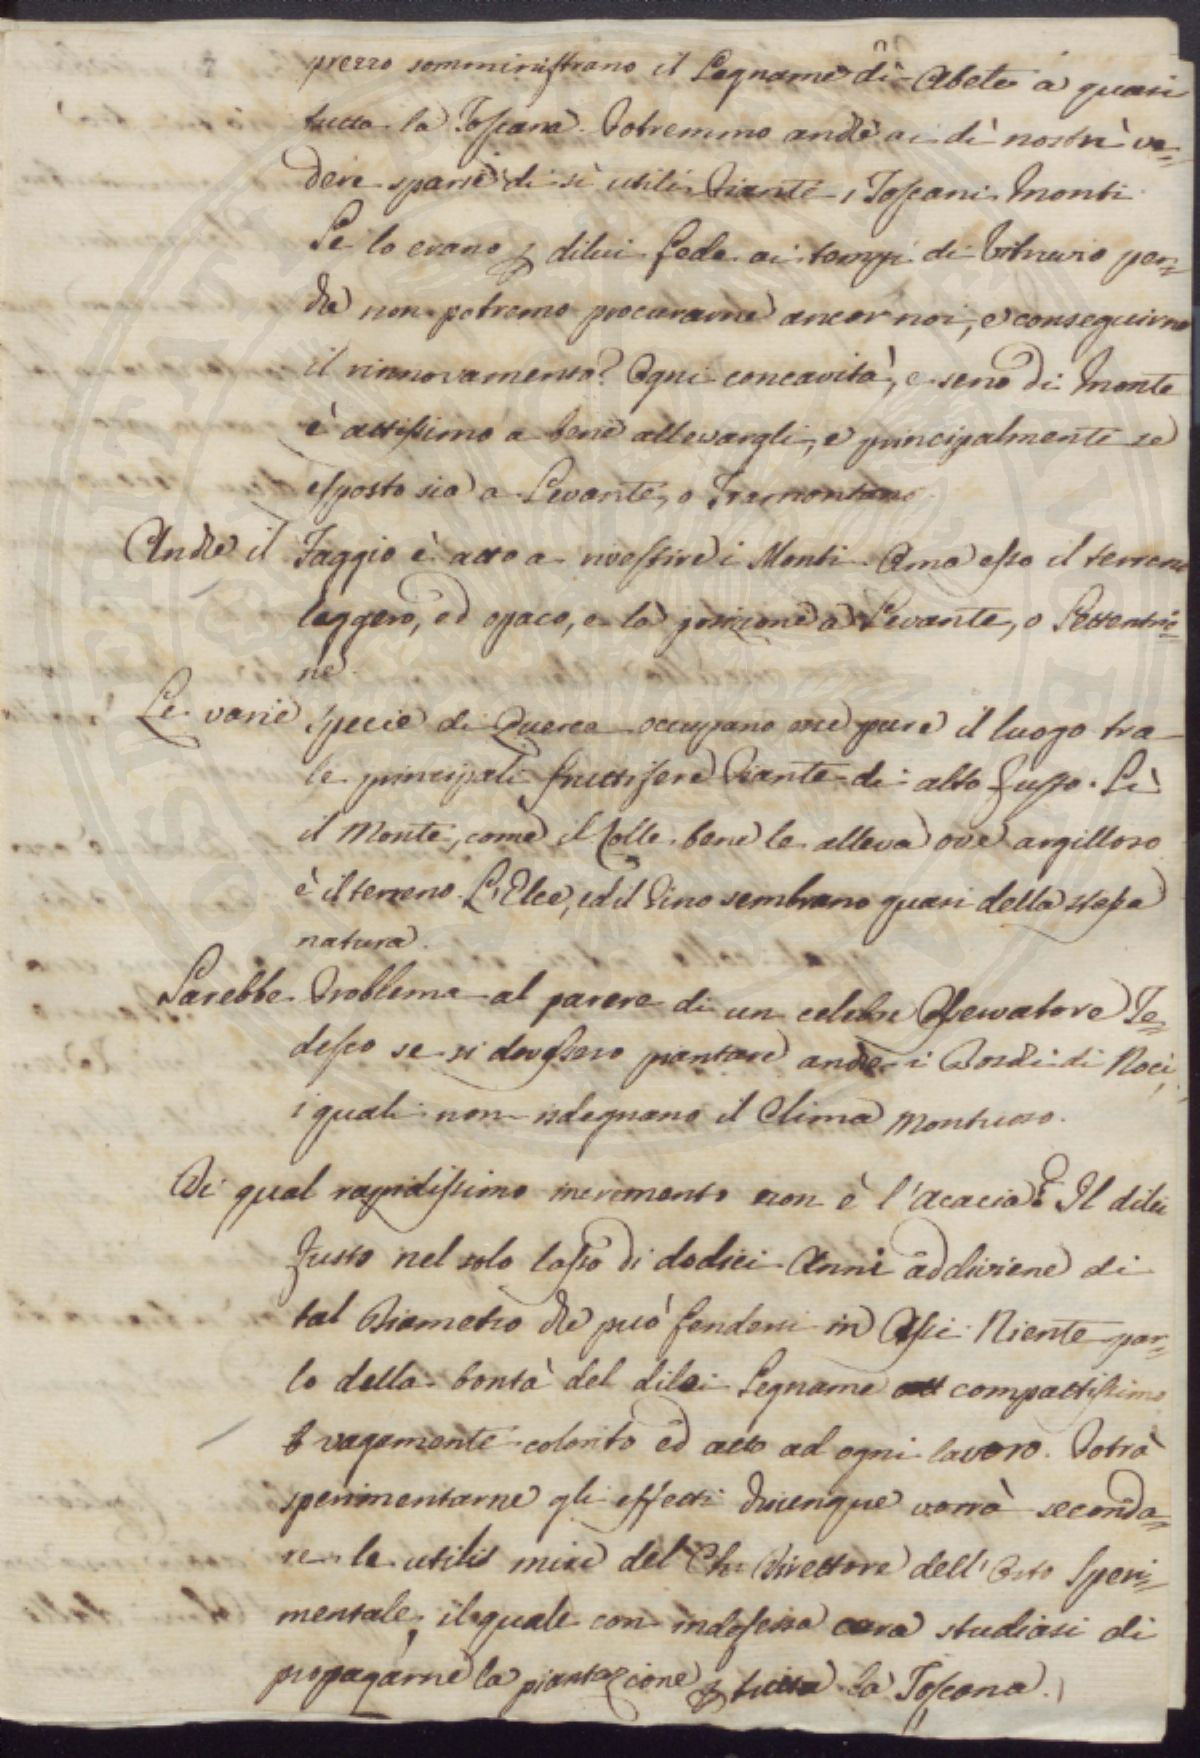 prezzo somministrano il Legname di Abete a quasi
tutta la Toscana. Potremmo anche ai dì nostri ve=
dere sparsi di sì utili Piante i Toscani Monti.
Se lo erano p dilui fede ai tempi di Vitruvio per=
che non potremo procurarne ancor noi, e conseguirne
il rinnovamento? Ogni concavità, e seno di Monte
è attissimo a bene allevargli, e principalmente se
esposto sia a Levante, o Tramontana.
Anche il Faggio è atto a rivestire i Monti. Ama esso il terreno
leggero, ed opaco, e la posizione a Levante, o Settentrio=
ne.
Le varie specie di Querce occupano me pure il luogo tra
le principali fruttifere Piante di alto fusto. Sì
il Monte, come il Colle bene le alleva ove argilloso
è il terreno. L'Elce, ed il Pino sembrano quasi della stessa
natura.
Sarebbe Problema al parere di un celebre Osservatore Te=
desco se si dovessero piantare anche i Boschi di Noci,
i quali non isdegnano il Clima Montuoso.
Di qual rapidissimo incremento non è l'Acacia? Il dilei
fusto nel solo lasso di dodici Anni addiviene di
tal Diametro che può fendersi in Assi. Niente par=
lo della bontà del dilei Legname compattissimo
e vagamente colorito ed atto ad ogni lavoro. Potrà
sperimentarne gli effetti chiunque vorrà seconda=
re le utili mire del Ch: Direttore dell'Orto Speri=
mentale, il quale con indefessa cura studiasi di
propagarne la piantazione p tutta la Toscana.